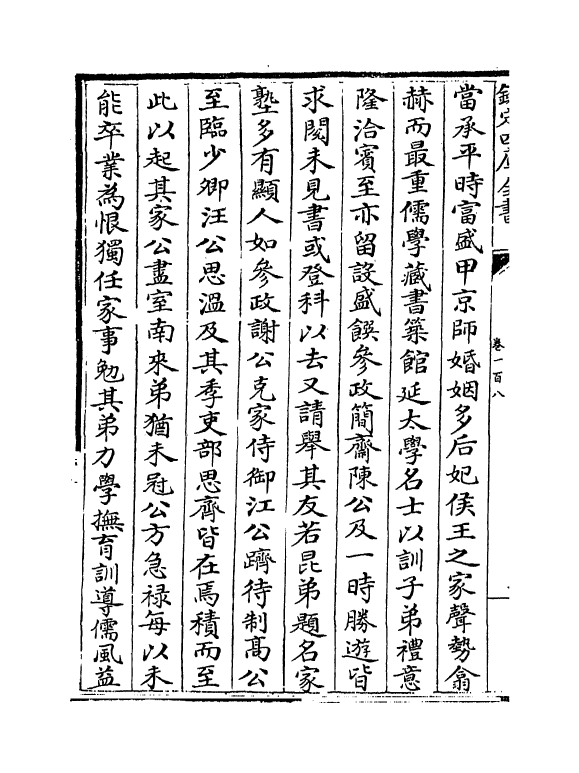 欽定四庫全書
卷一百八
當承平時富盛甲京師婚姻多后妃侯王之家聲勢翕
赫而最重儒學藏書築館延太學名士以訓子弟禮意
隆洽賓至亦留設盛饌參政簡齋陳公及一時勝遊皆
求閱未見書或登科以去又請舉其友若昆弟題名家
塾多有顯人如參政謝公克家侍御江公躋待制高公
至臨少卿汪公思溫及其季吏部思齊皆在焉積而至
此以起其家公盡室南來弟猶未冠公方急祿每以未
能卒業為恨獨任家事勉其弟力學撫育訓導儒風益